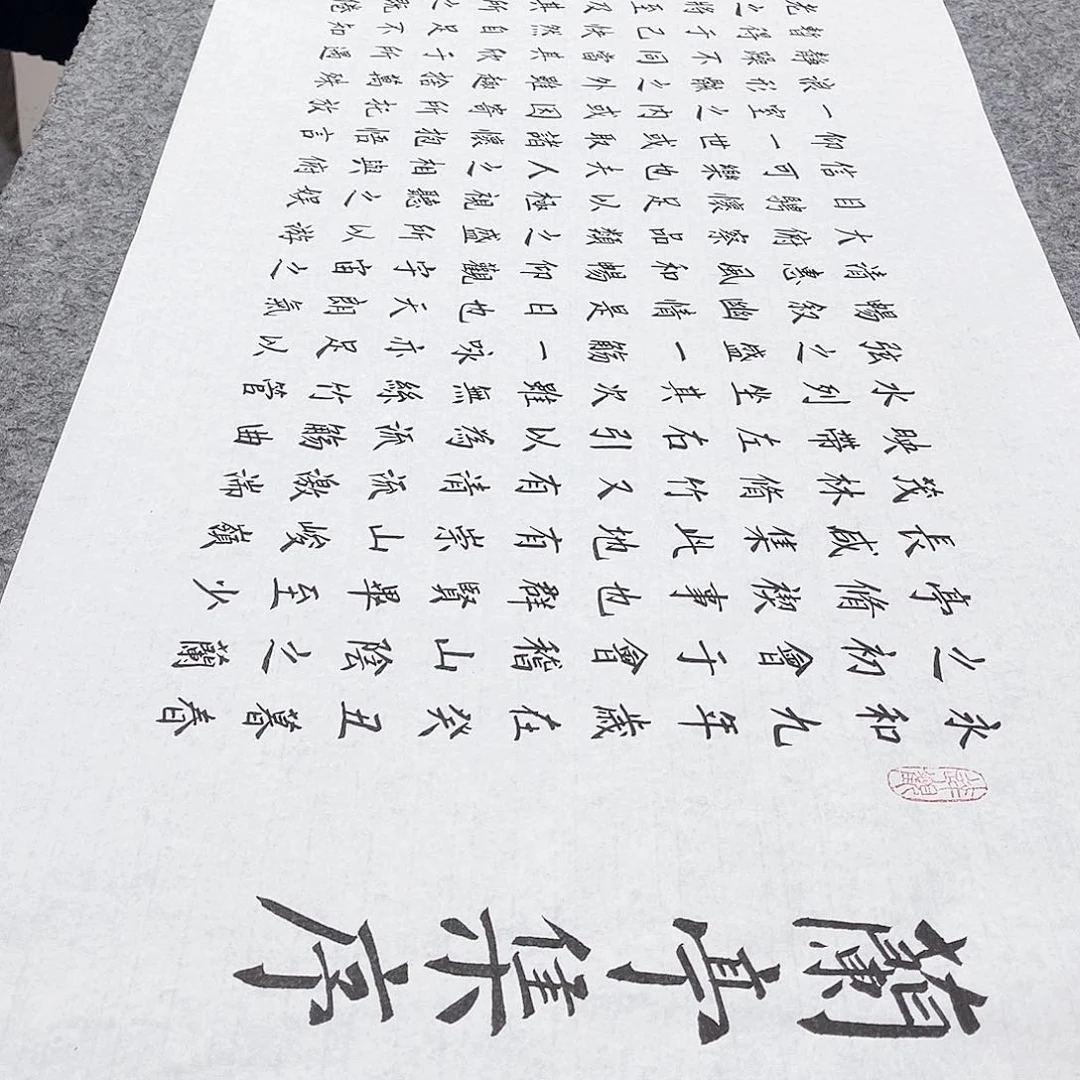 蘭亭集序
永和九年歲在癸丑暮春
之初會于會稽山陰之蘭
亭脩禊事也群賢畢至少
長咸集此地有崇山峻嶺
茂林脩竹又有清流激湍
映帶左右引以為流觴曲
水列坐其次雖無絲竹管
弦之盛一觴一咏亦足以
暢叙幽情是日也天朗氣
清惠風和暢仰觀宇宙之
大俯察品類之盛所以游
目騁懷足以極視聽之娛
信可樂也夫人之相與俯
仰一世或取諸懷抱悟言
一室之內或因寄所托放
浪形骸之外雖趣捨萬殊
靜躁不同當其欣于所遇
暫得于己快然自足不知
老之將至及其所之既倦